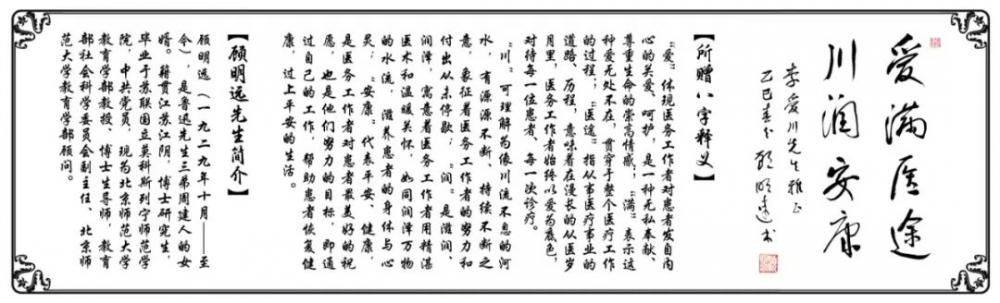 爱满医途
川润安康
李爱川先生雅正
乙巳春分 顾明远书
【所赠八字释义】
“爱”体现医务工作者对患者发自内
心的关爱、呵护，是一种无私奉献、
尊重生命的崇高情感；“满”表示这
种爱无处不在，贯穿于整个医疗工作
的过程；“医途”指从事医疗事业的
道路、历程，意味着在漫长的从医岁
月里，医务工作者始终以爱为底色，
对待每一位患者、每一次诊疗。
“川”可理解为像川流不息的河
水，有源源不断、持续不断之
意，象征着医务工作者的努力和
付出从未停歇；“润”是滋润、
润泽，寓意着医务工作者用精湛
医术和温暖关怀，如同润泽万物
的水流，滋养患者的身体与心
灵；“安康”代表平安、健康，
是医务工作者对患者最美好的祝
愿，也是他们努力的目标，即通
过自己的工作，帮助患者恢复健
康，过上平安的生活。
【顾明远先生简介】
顾明远（一九二九年十月——至
今），是鲁迅先生三弟周建人的女
婿。籍贯江苏江阴，博士研究生，
毕业于苏联国立莫科斯列宁师范学
院，中共党员，现为北京师范大学
教育学部教授、博士生导师，教育
部社会科学委员会副主任、北京师
范大学教育学部顾问。